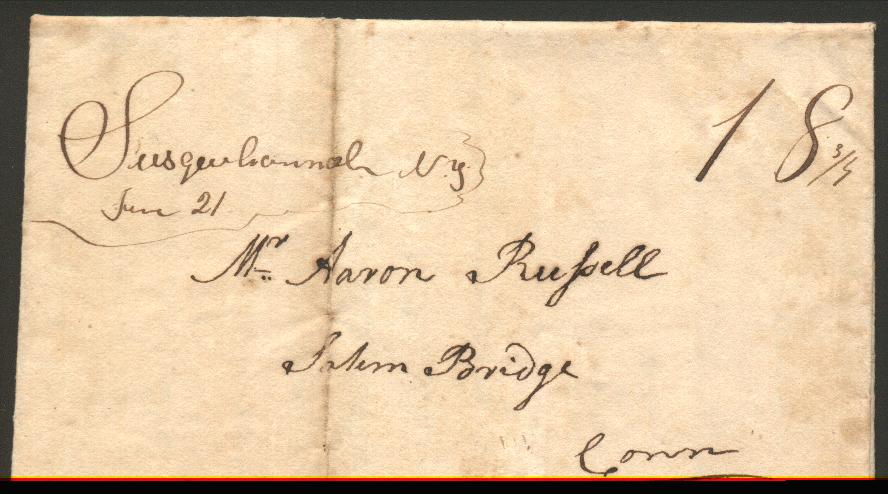 Susquehannah N.Y
18 3/4
June 21
Mr Aaron Rußell
Salem Bridge
Conn